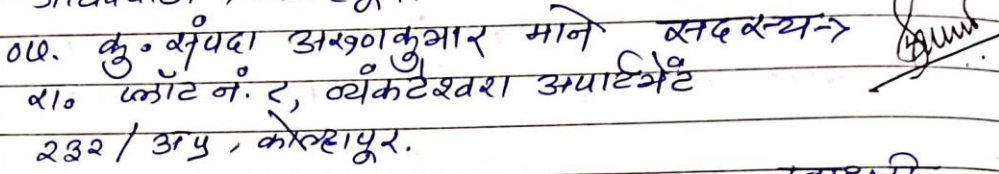 ०७. कु. संपदा अरुणकुमार माने सदस्य→
रा. प्लॉट नं. ८, व्यंकटेश्वरा अपार्टमेंट
२३२/अ५, कोल्हापूर.